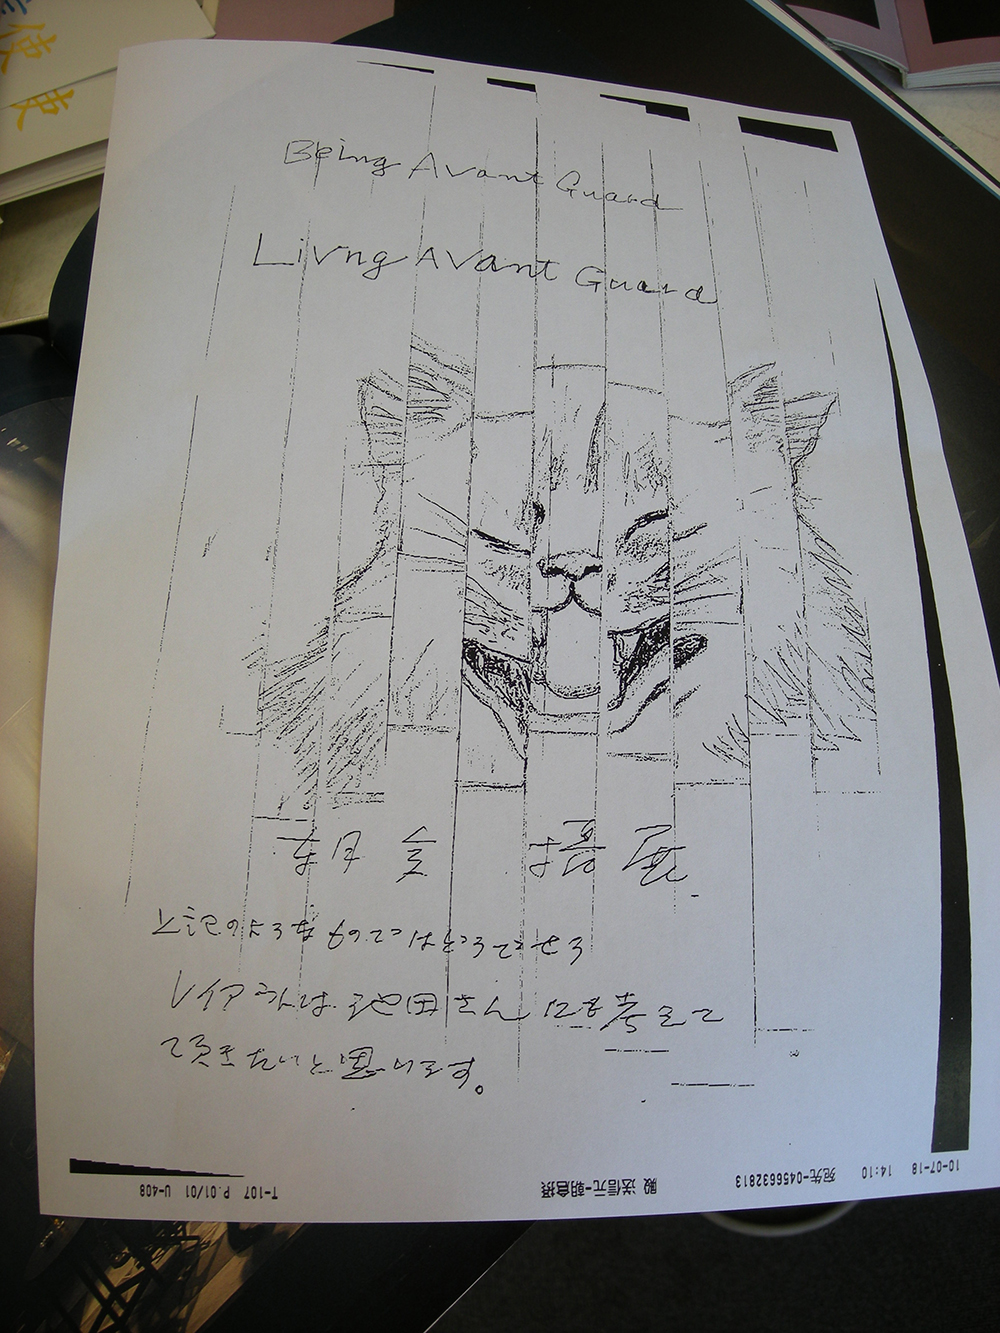 Being Avant Guard
Livng Avant Guard
朝倉 摂展
上記のようなものではどうでせう
レイアウトは池田さんにも考えて
頂きたいと思います。
10-07-18 14:10 宛先-0456632813 殿 送信元-朝倉摂 T-107 P.01/01 U-408